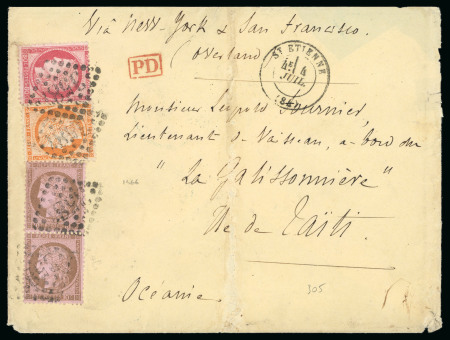 Via New-York & San Francisco.
(Overland)
PD
ST ETIENNE
4
JUIL.
(84)
Monsieur Léopold Fournier,
Lieutenant de Vaisseau, a bord du
"La Galissonnière"
Ile de Taïti.
Océanie.
305